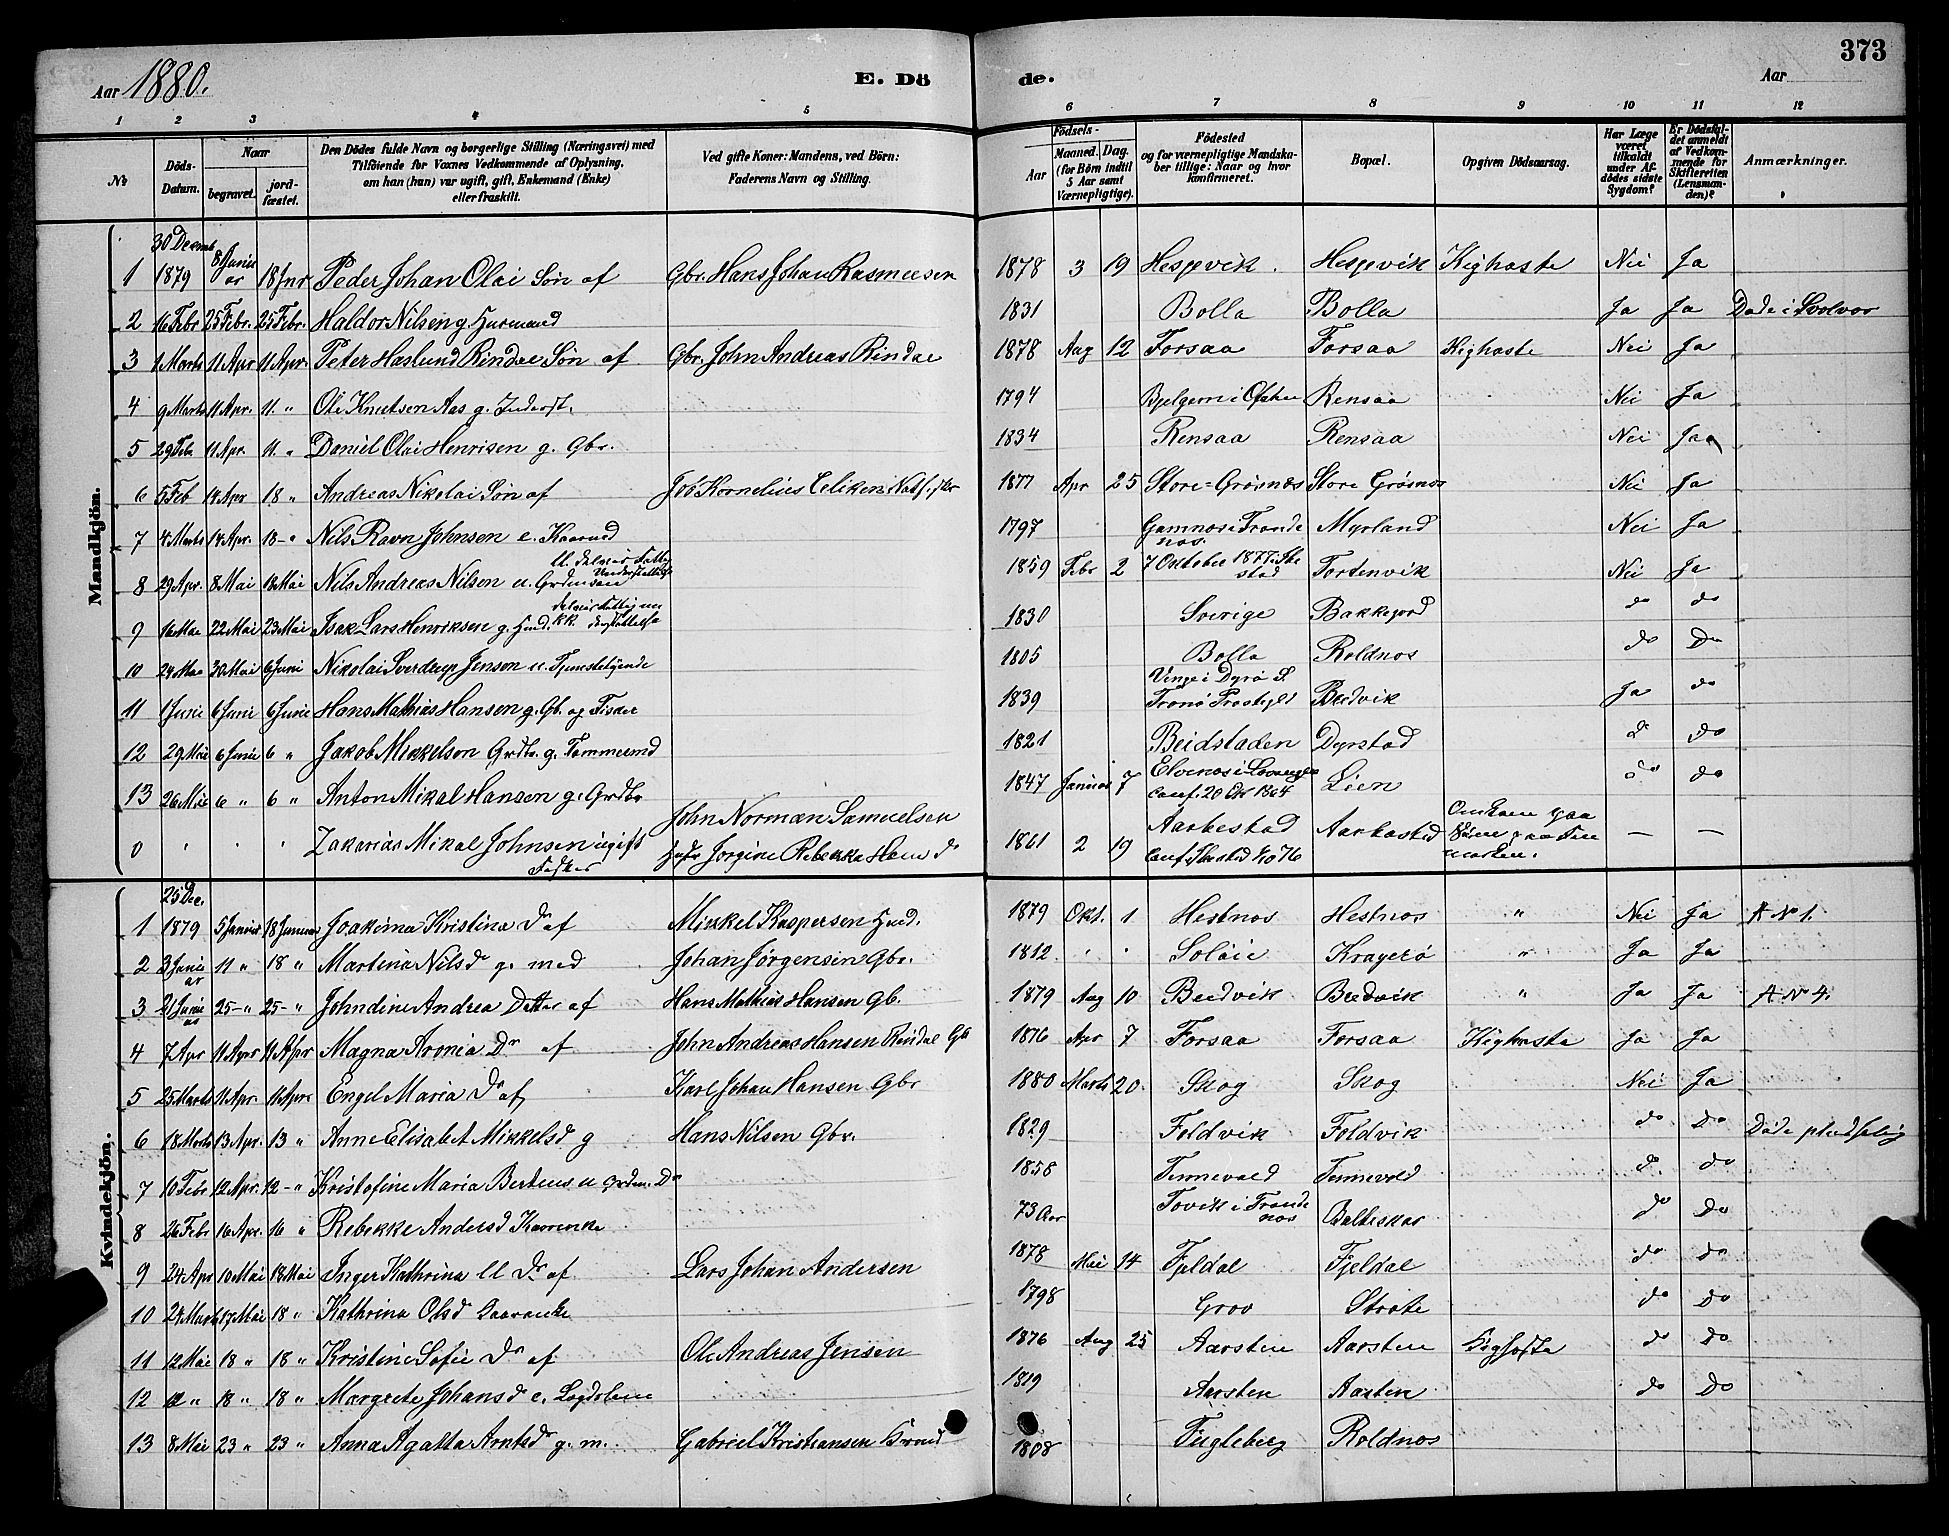 373
Aar 1880.
E. Dö
de.
Aar
1 2 3 4 5 6 7 8 9 10 11 12
№
Döds-Datum.
Naar
begravet.
jord-fæstet.
Den Dödes fulde Navn og borgerlige Stilling (Næringsvei) med
Tilföiende for Voxnes Vedkommende af Oplysning,
om han (hun) var ugift, gift, Enkemand (Enke)
eller fraskilt.
Ved gifte Koner: Mandens, ved Börn:
Faderens Navn og Stilling.
Födsels-
Aar
Maaned. Dag.
(for Börn indtil
5 Aar samt
Værnepligtige).
Födested
og for værnepligtige Mandska-
ber tillige: Naar og hvor
konfirmeret.
Bopæl.
Opgiven Dödsaarsag.
Har Læge
været
tilkaldt
under Af-
dödes sidste
Sygdom?
Er Dödsfal-
det anmeldt
af Vedkom-
mende for
Skifteretten
(Lensman-
den)?
Anmærkninger.
Mandkjön.
1 30 Decemb 1879 8 Januar 18 Jnr Peder Johan Olai Søn af Gbr. Hans Johan Rasmussen 1878 3 19 Hesjevik Hesjevik Kighoste Nei Ja
2 16 Febr 25 Febr. 25 Febr. Haldor Nilsen g Husmand 1831 Bolla Bolla Ja Ja Døde i Svolvær
3 1 Marts 11 Apr 11 Apr. Peter Haslund Rindal Søn af Gbr. John Andreas Rindal 1878 Aug 12 Forsaa Forsaa Kighoste Nei Ja
4 9 Marts 11 Apr. 11. " Ole Knutsen Aas g. Inderst. 1794 Rensaa Nei Ja
5 29 Febr 11 Apr. 11. " Daniel Olai Henriksen g. Gbr. 1834 Rensaa Rensaa Nei Ja
6 5 Feb 18 Apr 18 " Andreas Nikolai Søn af Job Kornelius 1877 Apr 25 Store-Grøsnæs Store Grøsnæs Nei Ja
7 4 Marts 18 Apr. 18 - " Nils Ravn Johnsen e. Kaarmd 1797 Gamnæs i Tronde
næs. Myrland Nei Ja
8 29 Apr. 8 Mai 18 Mai Nils Andreas Nilsen u. Grdmansøn 1859 Febr 2 7 Oktober 1877 i Ibe
stad Tortenvik Nei Ja
9 16 Mai 22 Mai 23 Mai Isak Lars Henriksen g. Husmd. 1830 Sverige Bakkejord do do
10 24 Mai 30 Mai 6 Juni Nikolai Sverdrup Jensen u. Tjenstdygende 1805 Bolla Roldnæs do Do
11 1 Juni 6 Juni 6 Juni Hans Mathias Hansen g. Gb. og Fisker 1839 Vinge i Dyrø S.
Tranø Præstegjeld Budvik Ja do
12 29 Mai 6 Juni 6 " Jakob Mikkelsen Grdbr. g. Tømmermd 1821 Beidstaden Dyrstad do do
13 26 Mai 6 " 6 " Anton Mikal Hansen g. Grdbr 1847 Januar 7 Elvenæs i Lavangen
Conf. 20 Okt 1864 Lien do do
0 " " " Zakarias Mikal Johnsen ugift
Fisker John Norman Samuelsen
Hustr Jorgine Rebekka Hans D. 1861 2 19 Aarbostad
Conf. Ibestad 1/10 76 Aarbostad Omkom paa
Søen paa Fin
marken. — —
Kvindekjön.
1 25 Dec. 1879 5 Januar 18 Januar Joakima Kristina Dr af Mikkel Kaspersen Husmd. 1879 Okt. 1 Hestnæs Hestnæs " Nei Ja A № 1.
2 3 Januar 11 " 18 " Martina Nilsd g. med Johan Jørgensen Gbr. 1812 " " Soløie Krayerø " Ja Ja
3 21 Januar 25 - " 25 - " Johndine Andrea Datter af Hans Mathias Hansen Gb. 1879 Aug 10 Budvik Budvik " Ja Ja A № 4.
4 7 Apr 11 Apr 11 Apr Magna Aronia Dr af John Andreas Hansen Rindal Gb 1876 Apr 7 Forsaa Forsaa Kighoste Ja Ja
5 25 Marts 11 Apr. 11 Apr Engel Maria Dr af Karl Johan Hansen Gbr 1880 Marts 20. Skog Skog Nei Ja
6 18 Marts 13 Apr. 13 " Anne Elisabet Mikkelsd g Hans Nilsen Gbr. 1829 Foldvik Foldvik do Do Døde pludselig
7 10 Febr 12 Apr. 12 - " Kristofine Maria Berteus u Grdm. Dr 1858 Tennevold Tennevold do do
8 26 Febr 16 Apr. 16 " Rebekke Andersd Kaarenke 73 Aar Tovik i Tronde
næs Balteskar do Do
9 24 Apr 10 Mai 18 Mai Inger Kathrina Dr af Lars Johan Andersen 1878 Mai 14 Fjeldal Fjeldal do do
10 24 Marts 17 Mai 18 " Kathrina Olsd Kaarenke 1798 Grov Strate do Do
11 12 Mai 18 " 18 " Kristine Sofie Dr af Ole Andreas Jensen 1876 Aug 25 Aarsten Aarsten Kighoste do Do
12 " 18 " 18 " Margrete Johansd e. Lægdslem 1819 Aarsten Aarsten do Do
13 8 Mai 23 " 23 " Anna Agatta Arntsd g. m. Gabriel Kristiansen 1808 Fugleberg Roldnæs